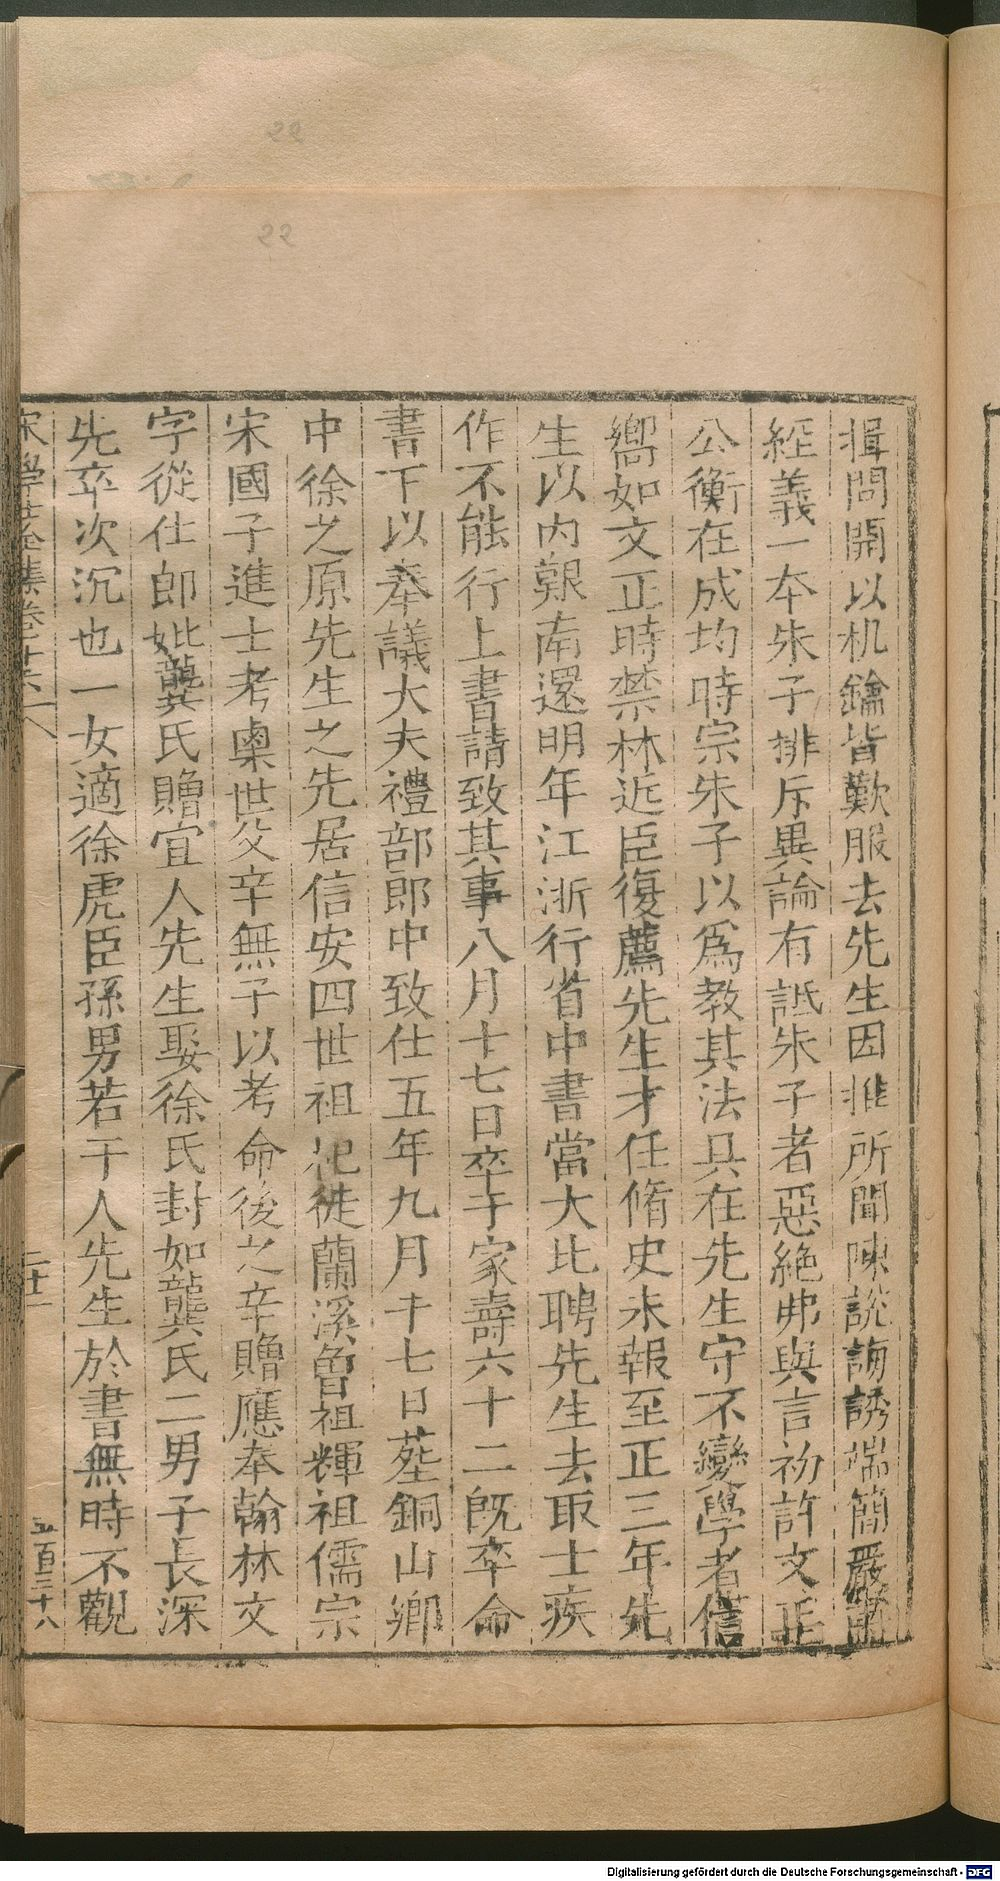 揖問開以机鑰皆歎服去先生因推所聞陳說誨誘端簡嚴肅
經義一本朱子排斥異論有詆朱子者惡絶弗與言初許文正
公衡在成均時宗朱子以爲教其法具在先生守不變學者信
嚮如文正時禁林近臣復薦先生才任脩史未報至正三年先
生以内艱南還明年江浙行省中書當大比聘先生去取士疾
作不能行上書請致其事八月十七日卒于家壽六十二既卒命
書下以奉議大夫禮部郎中致仕五年九月十七日塟銅山鄉
中徐之原先生之先居信安四世祖杞徙蘭溪魯祖輝祖儒宗
宋國子進士考奧世父辛無子以考命後之辛贈應奉翰林文
字從仕郎妣龔氏贈宜人先生娶徐氏封如龔氏二男子長深
先卒次沉也一女適徐虎臣孫男若干人先生於書無時不觀
宋學士全集卷之廿六
二十一
五百三十八
22
22
Digitalisierung gefördert durch die Deutsche Forschungsgemeinschaft - DFG